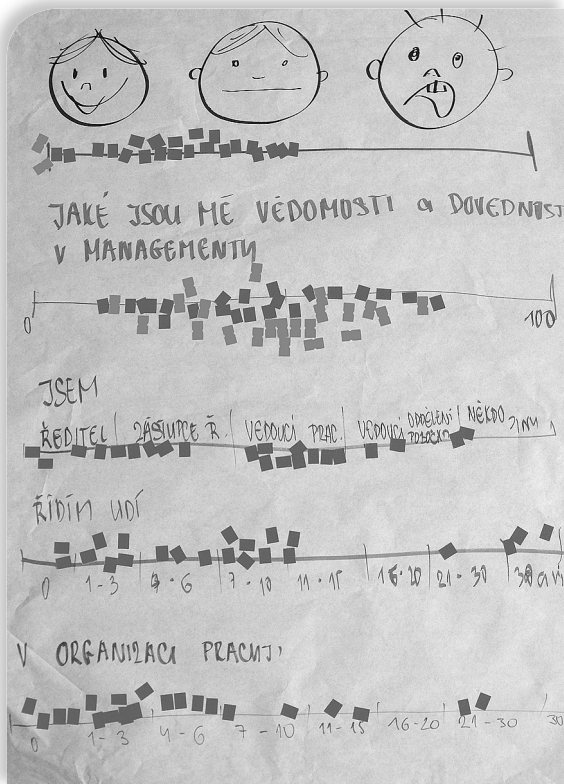 JAKÉ JSOU MÉ VĚDOMOSTI A DOVEDNOST
V MANAGEMENTU
0 100
JSEM
ŘEDITEL ZÁSTUPCE Ř. VEDOUCÍ PRAC. VEDOUCÍ ODDĚLENÍ NĚKDO JINÝ
ŘÍDÍM LIDÍ
0 1-3 4-6 7-10 11-15 16-20 21-30 30 a ví
V ORGANIZACI PRACUJI
0 1-3 4-6 7-10 11-15 16-20 21-30 30